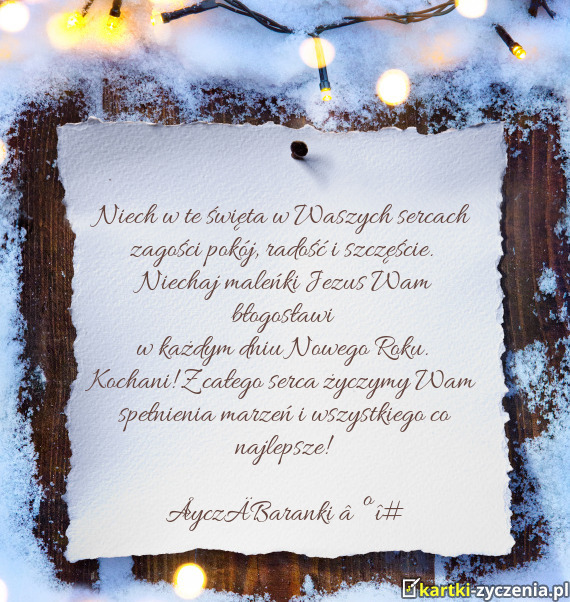 Niech w te święta w Waszych sercach
zagości pokój, radość i szczęście.
Niechaj maleńki Jezus Wam
błogosławi
w każdym dniu Nowego Roku.
Kochani! Z całego serca życzymy Wam
spełnienia marzeń i wszystkiego co
najlepsze!
ÅyczÄ Baranki â º î#
kartki-zyczenia.pl